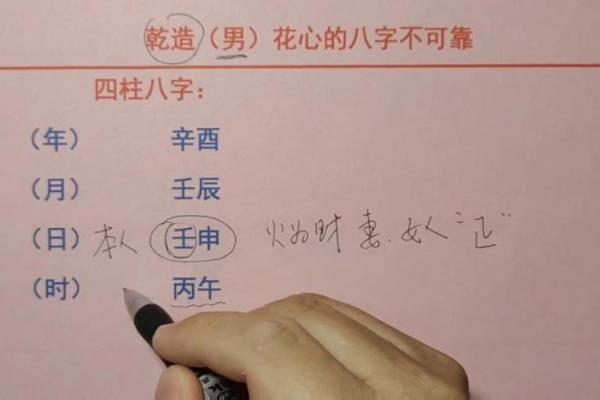 乾造（男）花心的八字不可靠
四柱八字：
（年） 辛酉
（月） 壬辰
（日） 本人 壬申 火为财 妻.女人"正"
（时） 丙午